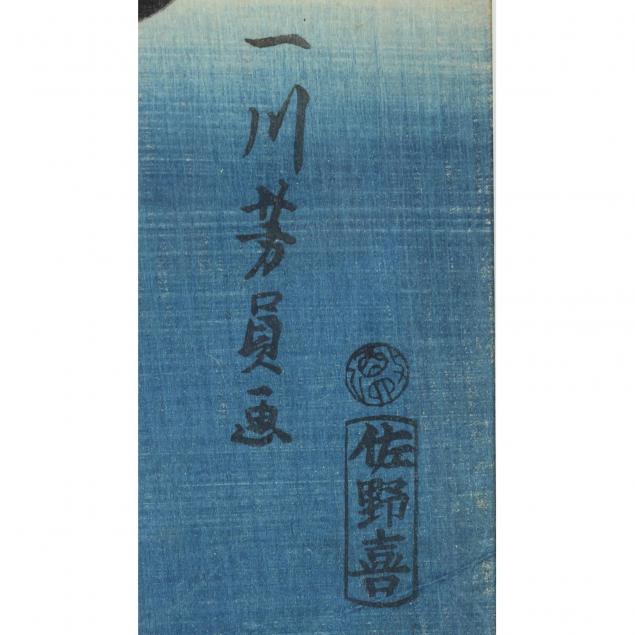 一川芳員画
佐野喜